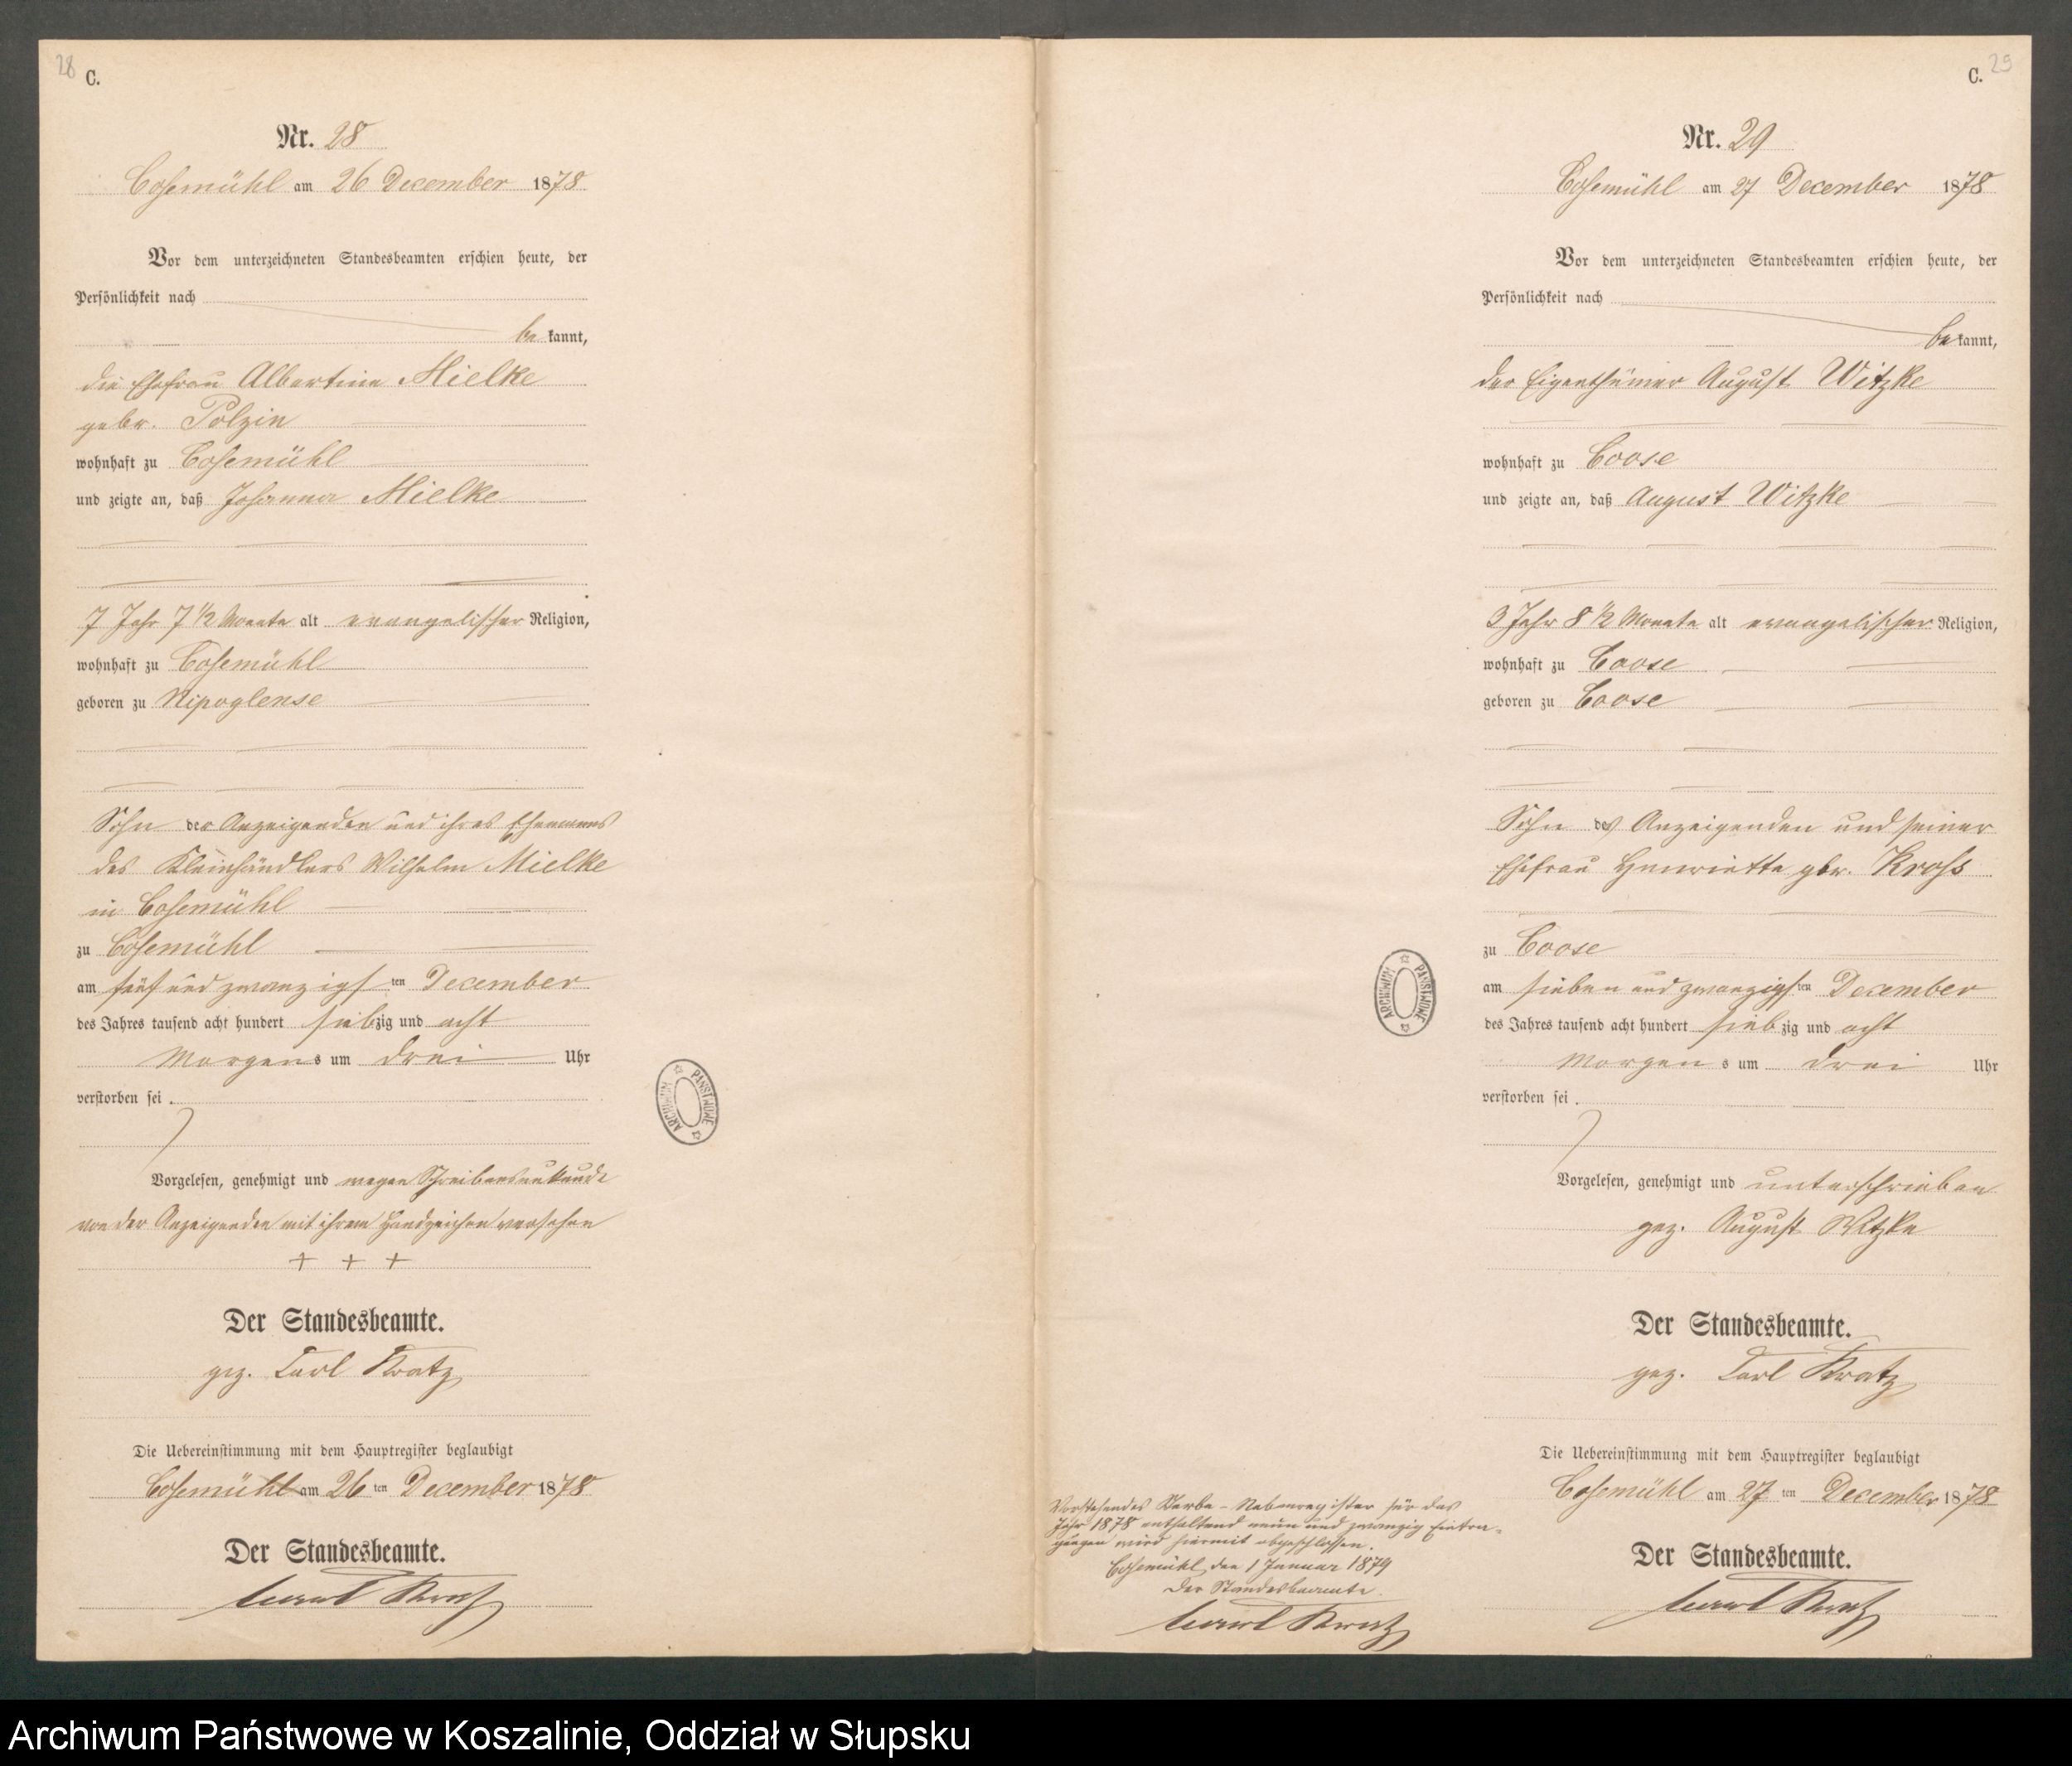 28
C.
Nr. 28
Cosemühl am 26 December 1878
Vor dem unterzeichneten Standesbeamten erschien heute, der
Persönlichkeit nach
be kannt,
die Ehefrau Albertine Mielke
gebr. Polzin
wohnhaft zu Cosemühl
und zeigte an, daß Johanna Mielke
7 Jahr 7 1/2 Monate alt evangelischer Religion,
wohnhaft zu Cosemühl
geboren zu Nipoglense
Sohn der Anzeigenden und ihres Ehemannes
des Kleinhändlers Wilhelm Mielke
in Cosemühl
zu Cosemühl
am fünf und zwanzigsten December
des Jahres tausend acht hundert siebzig und acht
Morgens um drei Uhr
verstorben sei.
Vorgelesen, genehmigt und wegen Schreibensunkunde
von der Anzeigenden mit ihrem Handzeichen versehen
+ + +
Der Standesbeamte.
gez. Carl Kratz
Die Uebereinstimmung mit dem Hauptregister beglaubigt
Cosemühl am 26 ten December 1878
Der Standesbeamte.
Carl Kratz
ARCHIWUM PAŃSTWOWE
C. 29
Nr. 29
Cosemühl am 27 December 1878
Vor dem unterzeichneten Standesbeamten erschien heute, der
Persönlichkeit nach
be kannt,
der Eigenthümer August Witzke
wohnhaft zu Coose
und zeigte an, daß August Witzke
3 Jahr 8 1/2 Monate alt evangelischer Religion,
wohnhaft zu Coose
geboren zu Coose
Sohn des Anzeigenden und seiner
Ehefrau Henriette gbr. Kroß
zu Coose
am sieben und zwanzigsten December
des Jahres tausend acht hundert siebzig und acht
Morgens um drei Uhr
verstorben sei.
Vorgelesen, genehmigt und unterschrieben
gez. August Witzke
Der Standesbeamte.
gez. Carl Kratz
Die Uebereinstimmung mit dem Hauptregister beglaubigt
Cosemühl am 27 ten December 1878
Der Standesbeamte.
Carl Kratz
ARCHIWUM PAŃSTWOWE
Vorstehendes Sterbe-Nebenregister für das
Jahr 1878 enthaltend neun und zwanzig Eintra-
gungen wird hiermit abgeschlossen.
Cosemühl, den 1 Januar 1879
Der Standesbeamte.
Carl Kratz
Archiwum Państwowe w Koszalinie, Oddział w Słupsku